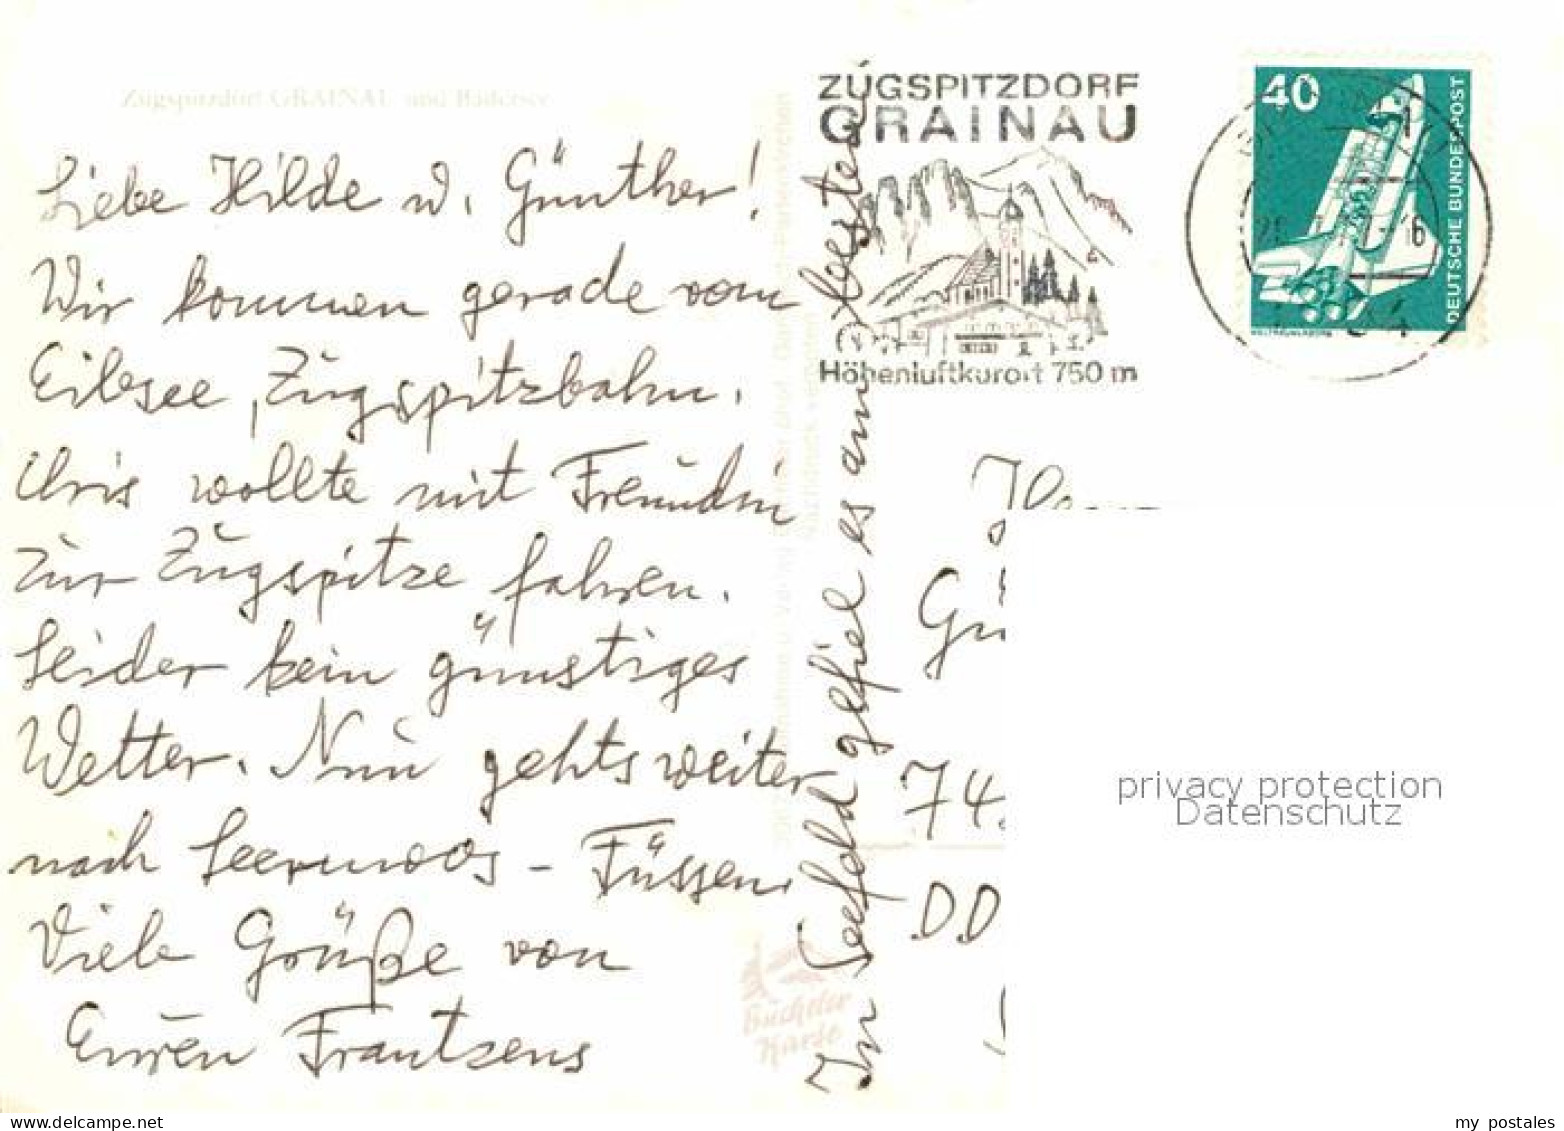 Zugspitzdorf GRAINAU und Badersee
Liebe Hilde u. Günther!
Wir kommen gerade vom
Eibsee, Zugspitzbahn.
Chris wollte mit Freundin
zur Zugspitze fahren.
Leider kein günstiges
Wetter. Nun gehts weiter
nach Leermoos - Füssen.
Viele Grüße von
Euren Frantzens
In Seefeld gefiel es am besten
Nachdruck verboten
Bücheler
Karte
ZUGSPITZDORF
GRAINAU
Höhenluftkurort 750 m
40
DEUTSCHE BUNDESPOST
Gü
74
DD
privacy protection
Datenschutz
delcampe.net
my_postales